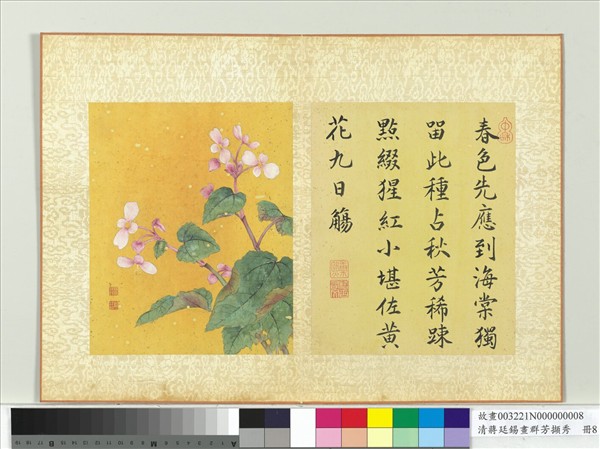 春色先應到海棠獨
留此種占秋芳稀踈
點綴猩紅小堪佐黃
花九日觴
故畫003221N000000008
清蔣廷錫畫群芳擷秀　冊8